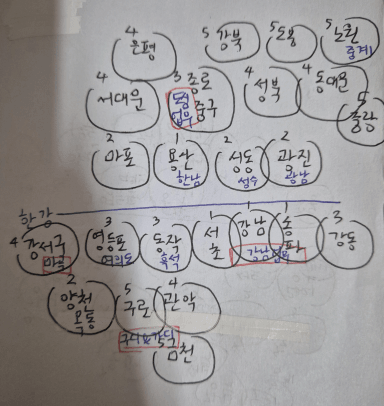 4 은평
5 강북
5 도봉
5 노원
중계
4 서대문
3 종로
중구
도심
업무
4 성북
4 동대문
5 중랑
2 마포
1 용산
한남
2 성동
성수
2 광진
광남
한강
4 강서구
마곡
3 영등포
여의도
3 동작
흑석
1 서초
1 강남
1 송파
강남업무
3 강동
2 양천
목동
5 구로
4 관악
구디&가디
금천